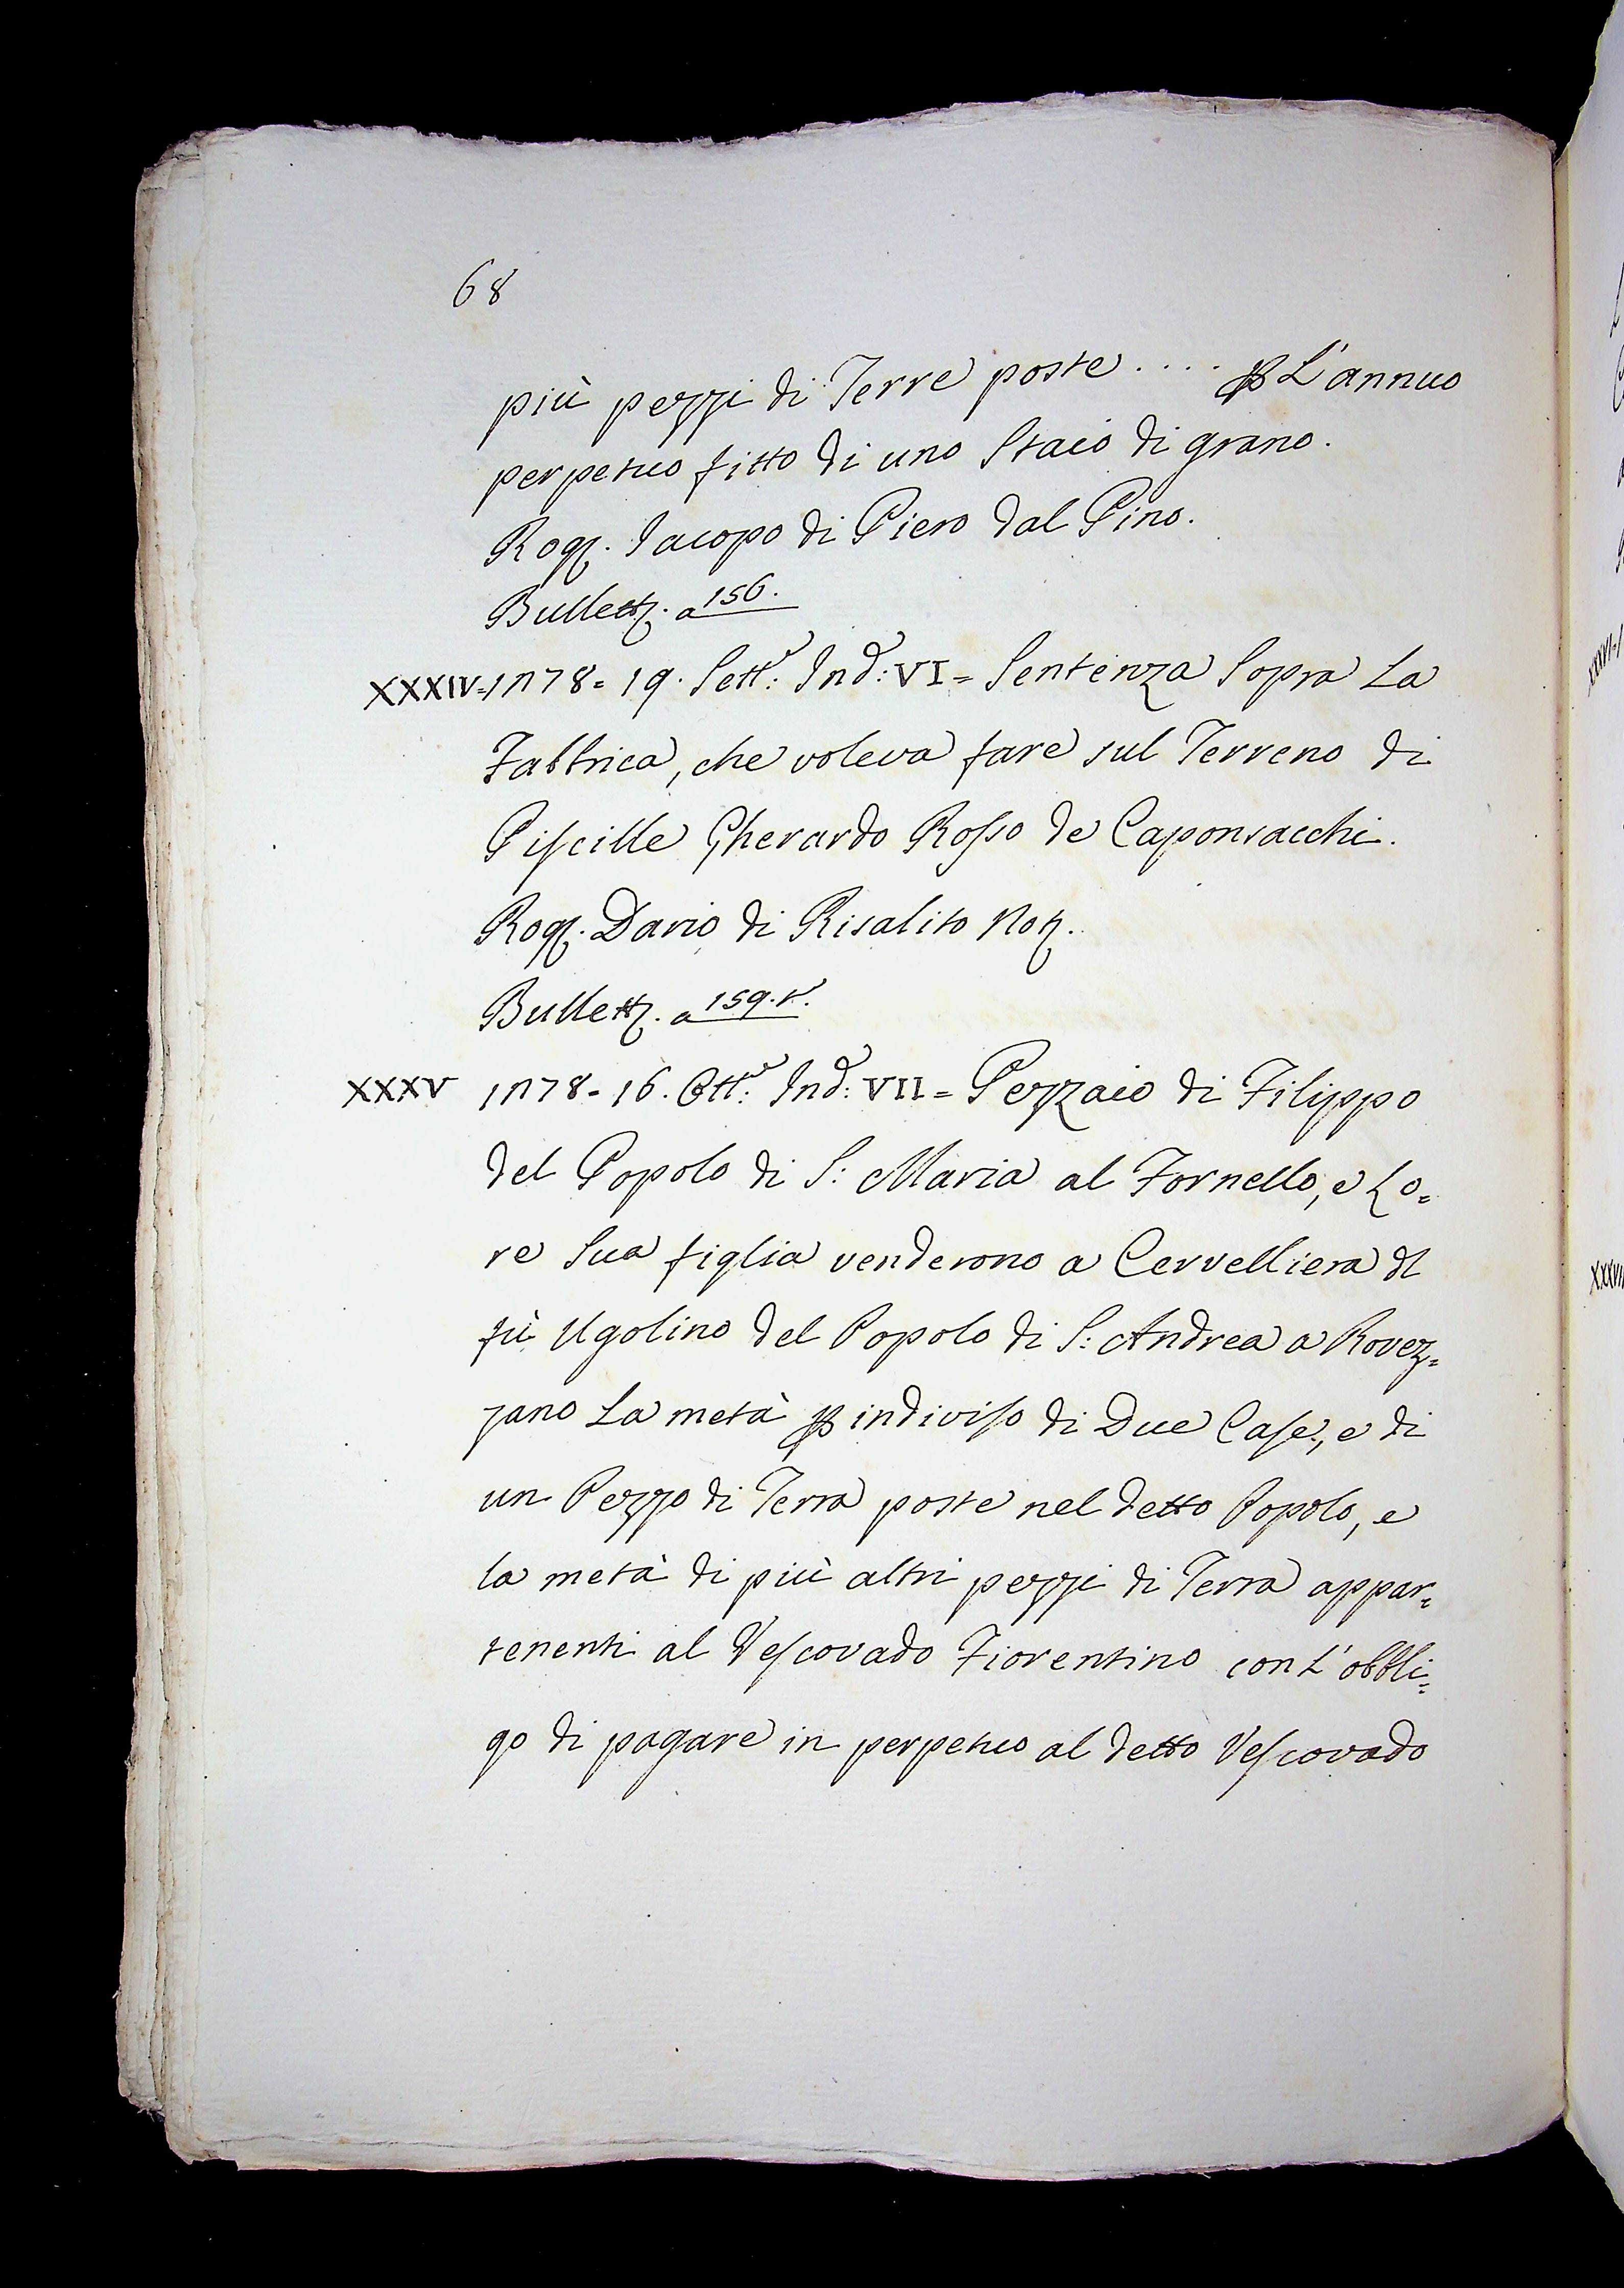 68
più pezzi di Terre poste .... ꝑ L'annuo
perpetuo fitto di uno Staio di grano.
Rog. Iacopo di Piero dal Pino.
Bullett. a 156.
XXXIV = 1278 = 19. Sett.e: Ind: VI = Sentenza Sopra La
Fabbrica, che voleva fare sul Terreno di
Piscille Gherardo Rosso de Caponsacchi.
Rog. Dario di Risalito Not.
Bullett. a 159. v.
XXXV 1278 = 16. Ott.e: Ind: VII = Pezzaio di Filippo
del Popolo di S: Maria al Fornello, e Lo=
re Sua figlia venderono a Cervelliera di
fù Ugolino del Popolo di S: Andrea a Rovez=
zano La metà ꝑ indiviso di Due Case, e di
un Pezzo di Terra poste nel detto Popolo, e
la metà di più altri pezzi di Terra appar=
tenenti al Vescovado Fiorentino con L'obbli=
go di pagare in perpetuo al detto Vescovado